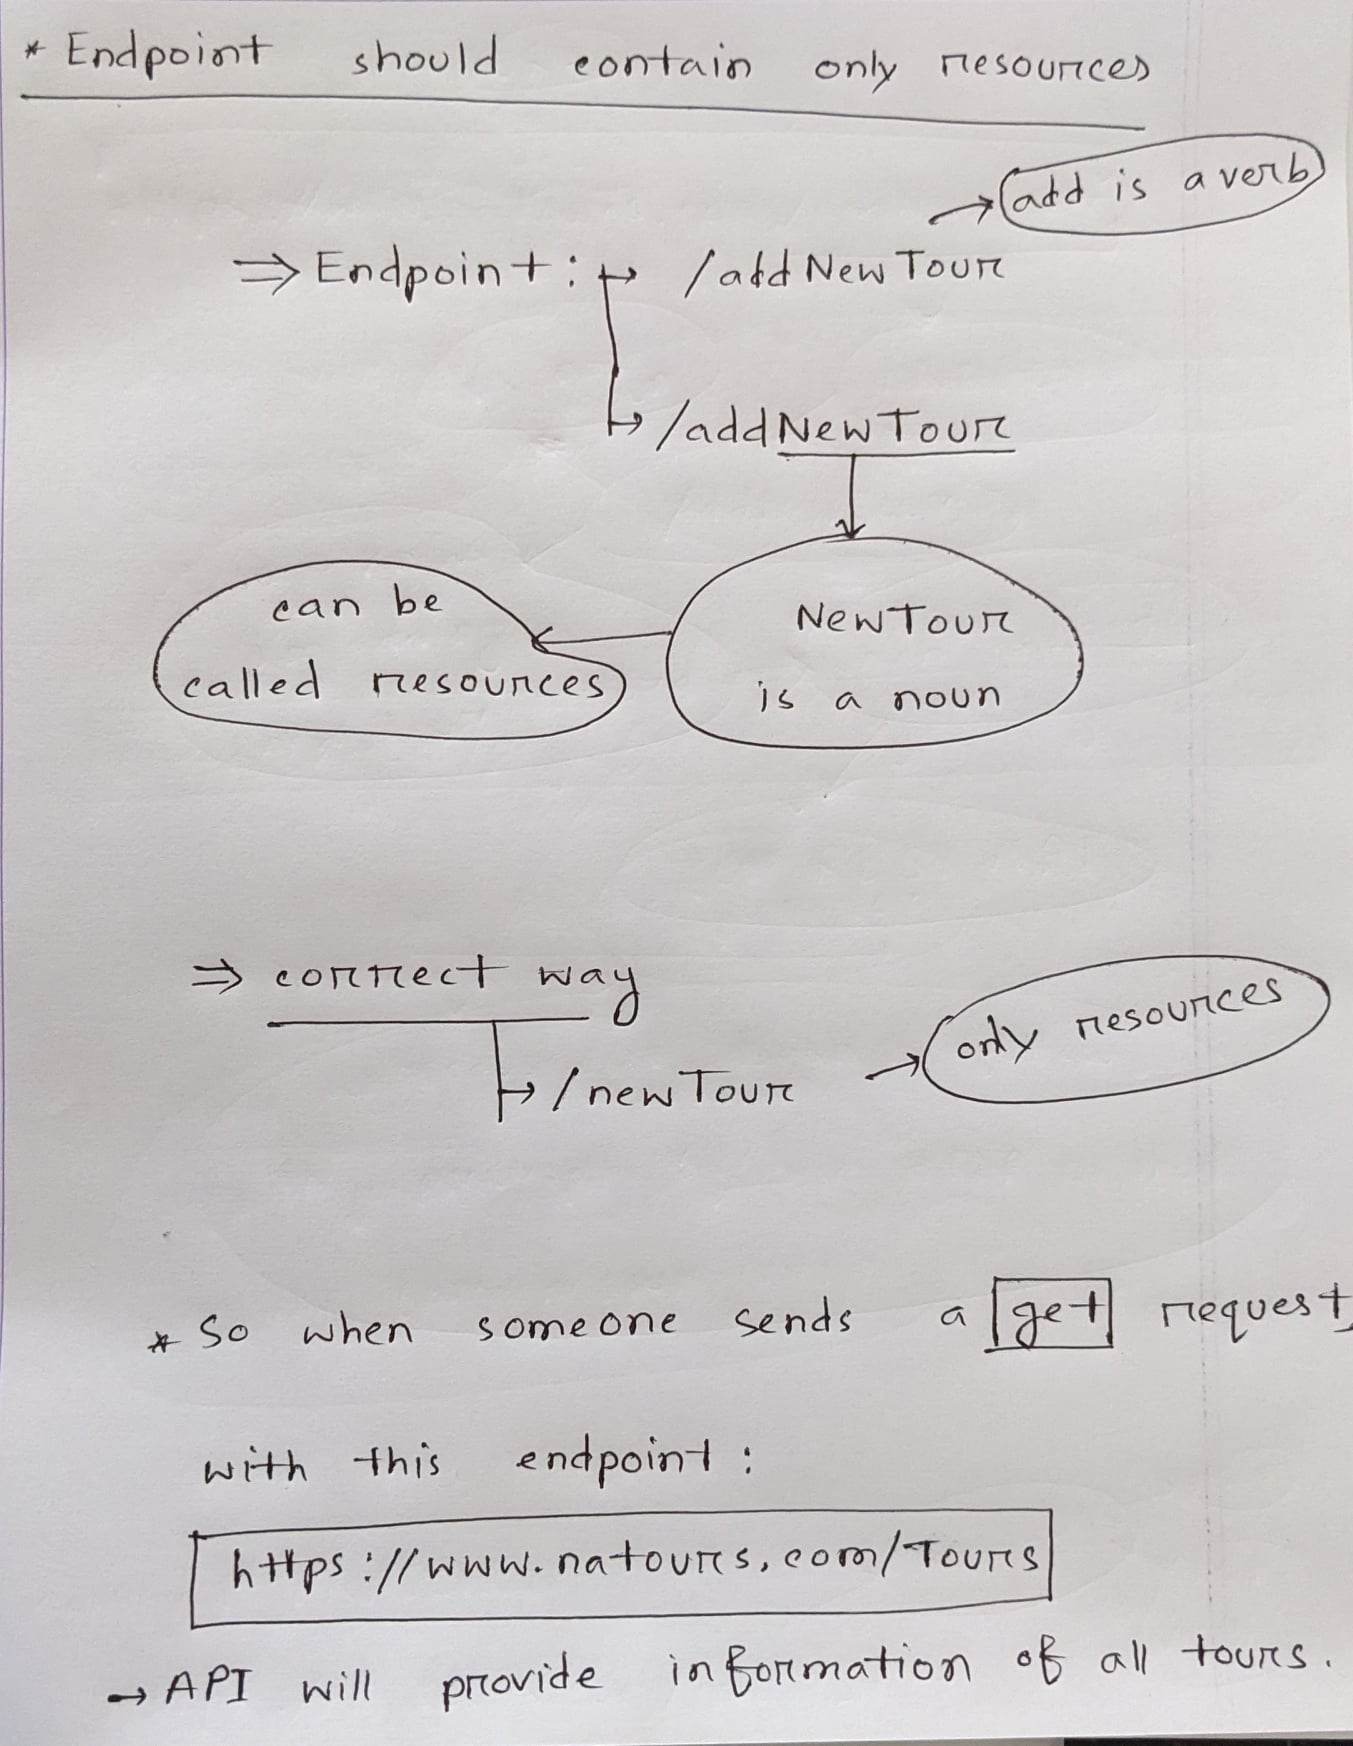 * Endpoint should contain only resources
→ add is a verb
⇒ Endpoint : → /addNewTour
→ /addNewTour
can be
called resources
NewTour
is a noun
⇒ correct way
→ /newTour → only resources
* So when someone sends a get request,
with this endpoint :
https://www.natours.com/Tours
→ API will provide information of all tours.